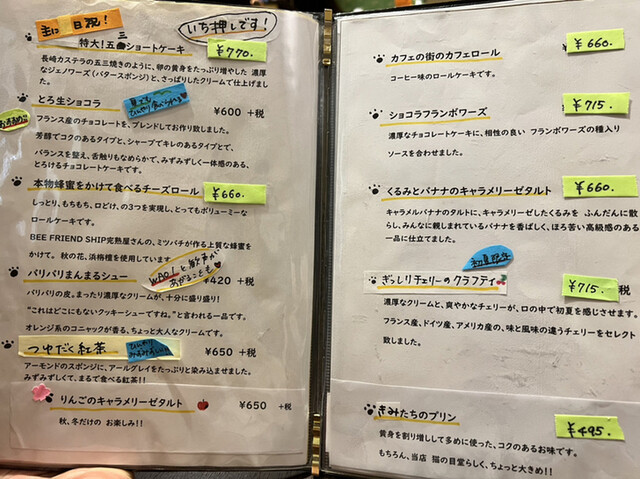 主に日祝!
いち押しです!
特大!五三ショートケーキ
¥770.
長崎カステラの五三焼きのように、卵の黄身をたっぷり増やした 濃厚
なジェノワーズ(バタースポンジ)と、さっぱりしたクリームで仕上げまし
とろ生ショコラ
夏でも
¥600 +税
おすすめ!!
フランス産のチョコレートを、ブレンドしてお作り致しました。
芳醇でコクのあるタイプと、シャープでキレのあるタイプとで、
バランスを整え、舌触りもなめらかで、みずみずしく一体感のある、
とろけるチョコレートケーキです。
本物蜂蜜をかけて食べるチーズロール
¥660.
しっとり、もちもち、口どけ、の3つを実現し、とってもボリューミーな
ロールケーキです。
BEE FRIEND SHIP完熟屋さんの、ミツバチが作る上質な蜂蜜を
かけて。秋の花、浜梅檀を使用しています
WAO!と歓声が
あがることも
パリパリまんまるシュー
¥420 +税
パリパリの皮。まったり濃厚なクリームが、十分に盛り盛り!
"これはどこにもないクッキーシューですね。"と言われる一品です。
オレンジ系のコニャックが香る、ちょっと大人なクリームです。
つゆだく紅茶
ひんやり
¥650 +税
アーモンドのスポンジに、アールグレイをたっぷりと染み込ませました。
みずみずしくて、まるで食べる紅茶!!
りんごのキャラメリーゼタルト
¥650 +税
秋、冬だけの お楽しみ!!
カフェの街のカフェロール
¥660.
コーヒー味のロールケーキです。
ショコラフランボワーズ
¥715.
濃厚なチョコレートケーキに、相性の良い フランボワーズの種入り
ソースを合わせました。
くるみとバナナのキャラメリーゼタルト
¥660.
キャラメルバナナのタルトに、キャラメリーゼしたくるみを ふんだんに散
らし、みんなに親しまれているバナナを香ばしく、ほろ苦い高級感のある
一品に仕立てました。
初夏限定
ぎっしりチェリーのクラフティ
¥715.
濃厚なクリームと、爽やかなチェリーが、口の中で初夏を感じさせます。
フランス産、ドイツ産、アメリカ産の、味と風味の違うチェリーをセレクト
致しました。
きみたちのプリン
¥495.
黄身を割り増しして多めに使った、コクのあるお味です。
もちろん、当店 猫の目堂らしく、ちょっと大きめ!!